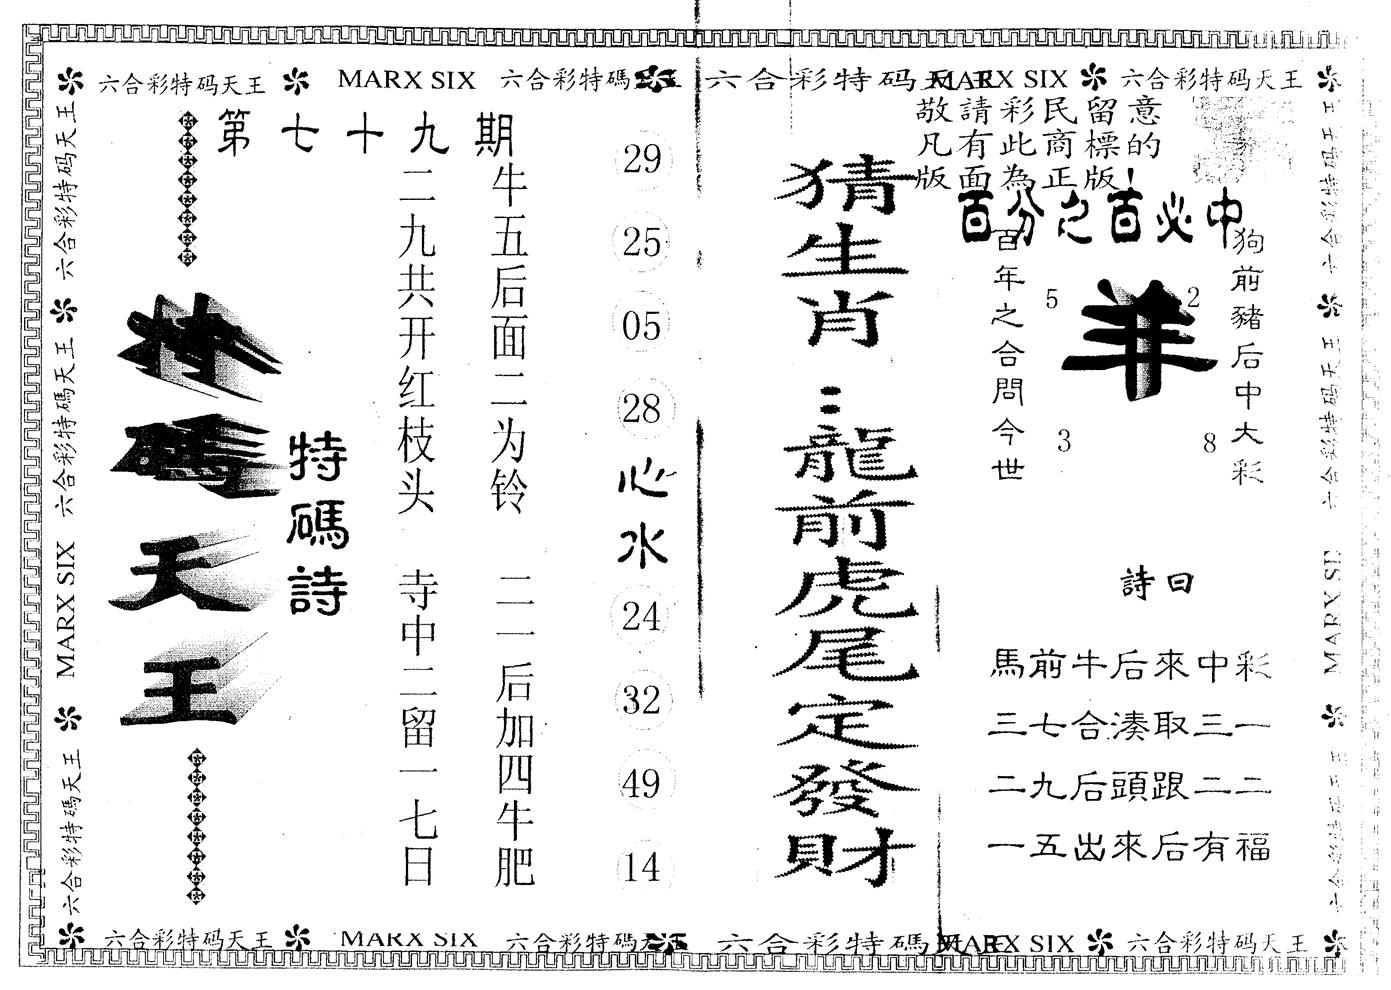 六合彩特码天王 MARX SIX 六合彩特碼天王 六合彩特码天王 MARX SIX 六合彩特码天王
敬請彩民留意
凡有此商標的
版面為正版!
第七十九期
牛五后面二为铃 二一后加四牛肥
二九共开红枝头 寺中二留一七日
特碼詩
特碼天王
29
25
05
28
心水
24
32
49
14
猜生肖:龍前虎尾定發財
百分之百必中
狗前豬后中大彩
羊
5
2
3
8
百年之合問今世
詩曰
馬前牛后來中彩
三七合湊取三一
二九后頭跟二二
一五出來后有福
六合彩特码天王 六合彩特碼天王 MARX SIX 六合彩特碼天王
六合彩特码天王 六合彩特碼天王 MARX SIX 六合彩特碼天王
六合彩特码天王 MARX SIX 六合彩特碼天王 六合彩特碼天王 MARX SIX 六合彩特码天王